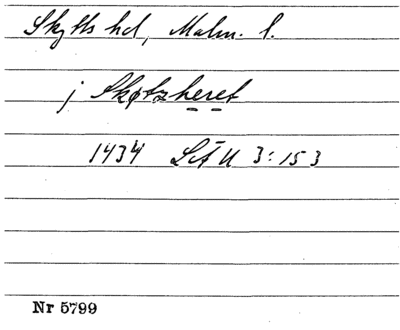 Skytts hd, Malm. l.
j Skøtzheret
1434 SCÅ U 3:153
Nr 5799